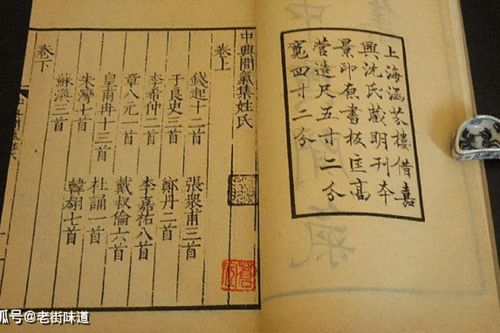 上海涵芬樓借嘉
興沈氏藏明刊本
景印原書板匡高
營造尺五寸二分
寬四寸二分
中興閒氣集姓氏
卷上
錢起十二首 張衆甫三首
于良史二首 鄭丹二首
李希仲二首 李嘉祐八首
章八元二首 戴叔倫六首
皇甫冉十三首 杜誦一首
朱灣首 韓翃七首
蘇渙三首
卷下
狐号@老街味道